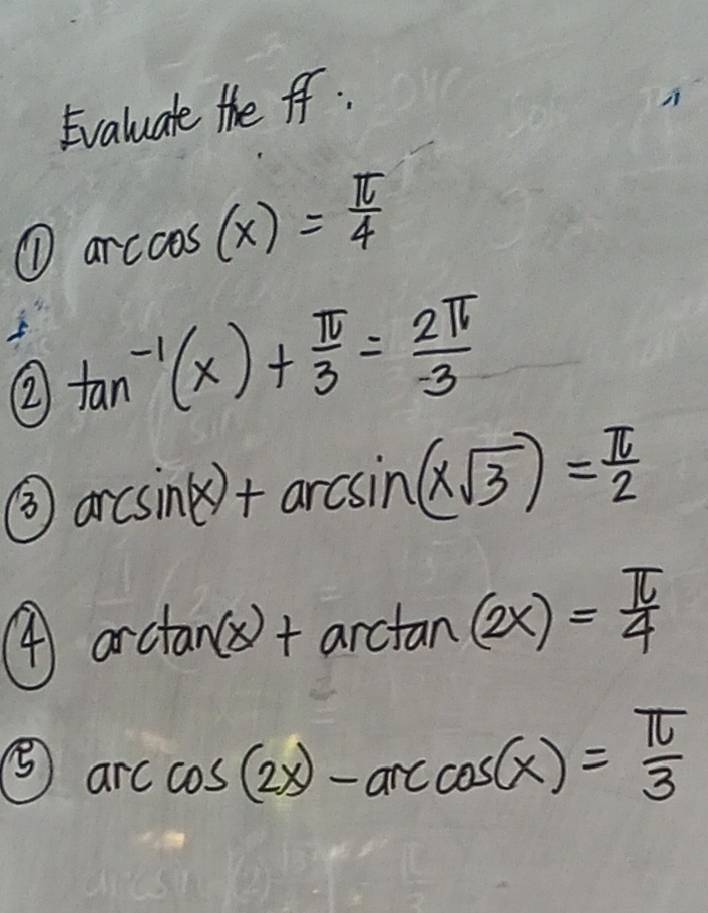 Evaluate the ff:
① arccos(x) = π/4
② tan⁻¹(x) + π/3 = 2π/-3
③ arcsin(x) + arcsin(x√3) = π/2
④ arctan(x) + arctan(2x) = π/4
⑤ arccos(2x) - arccos(x) = π/3